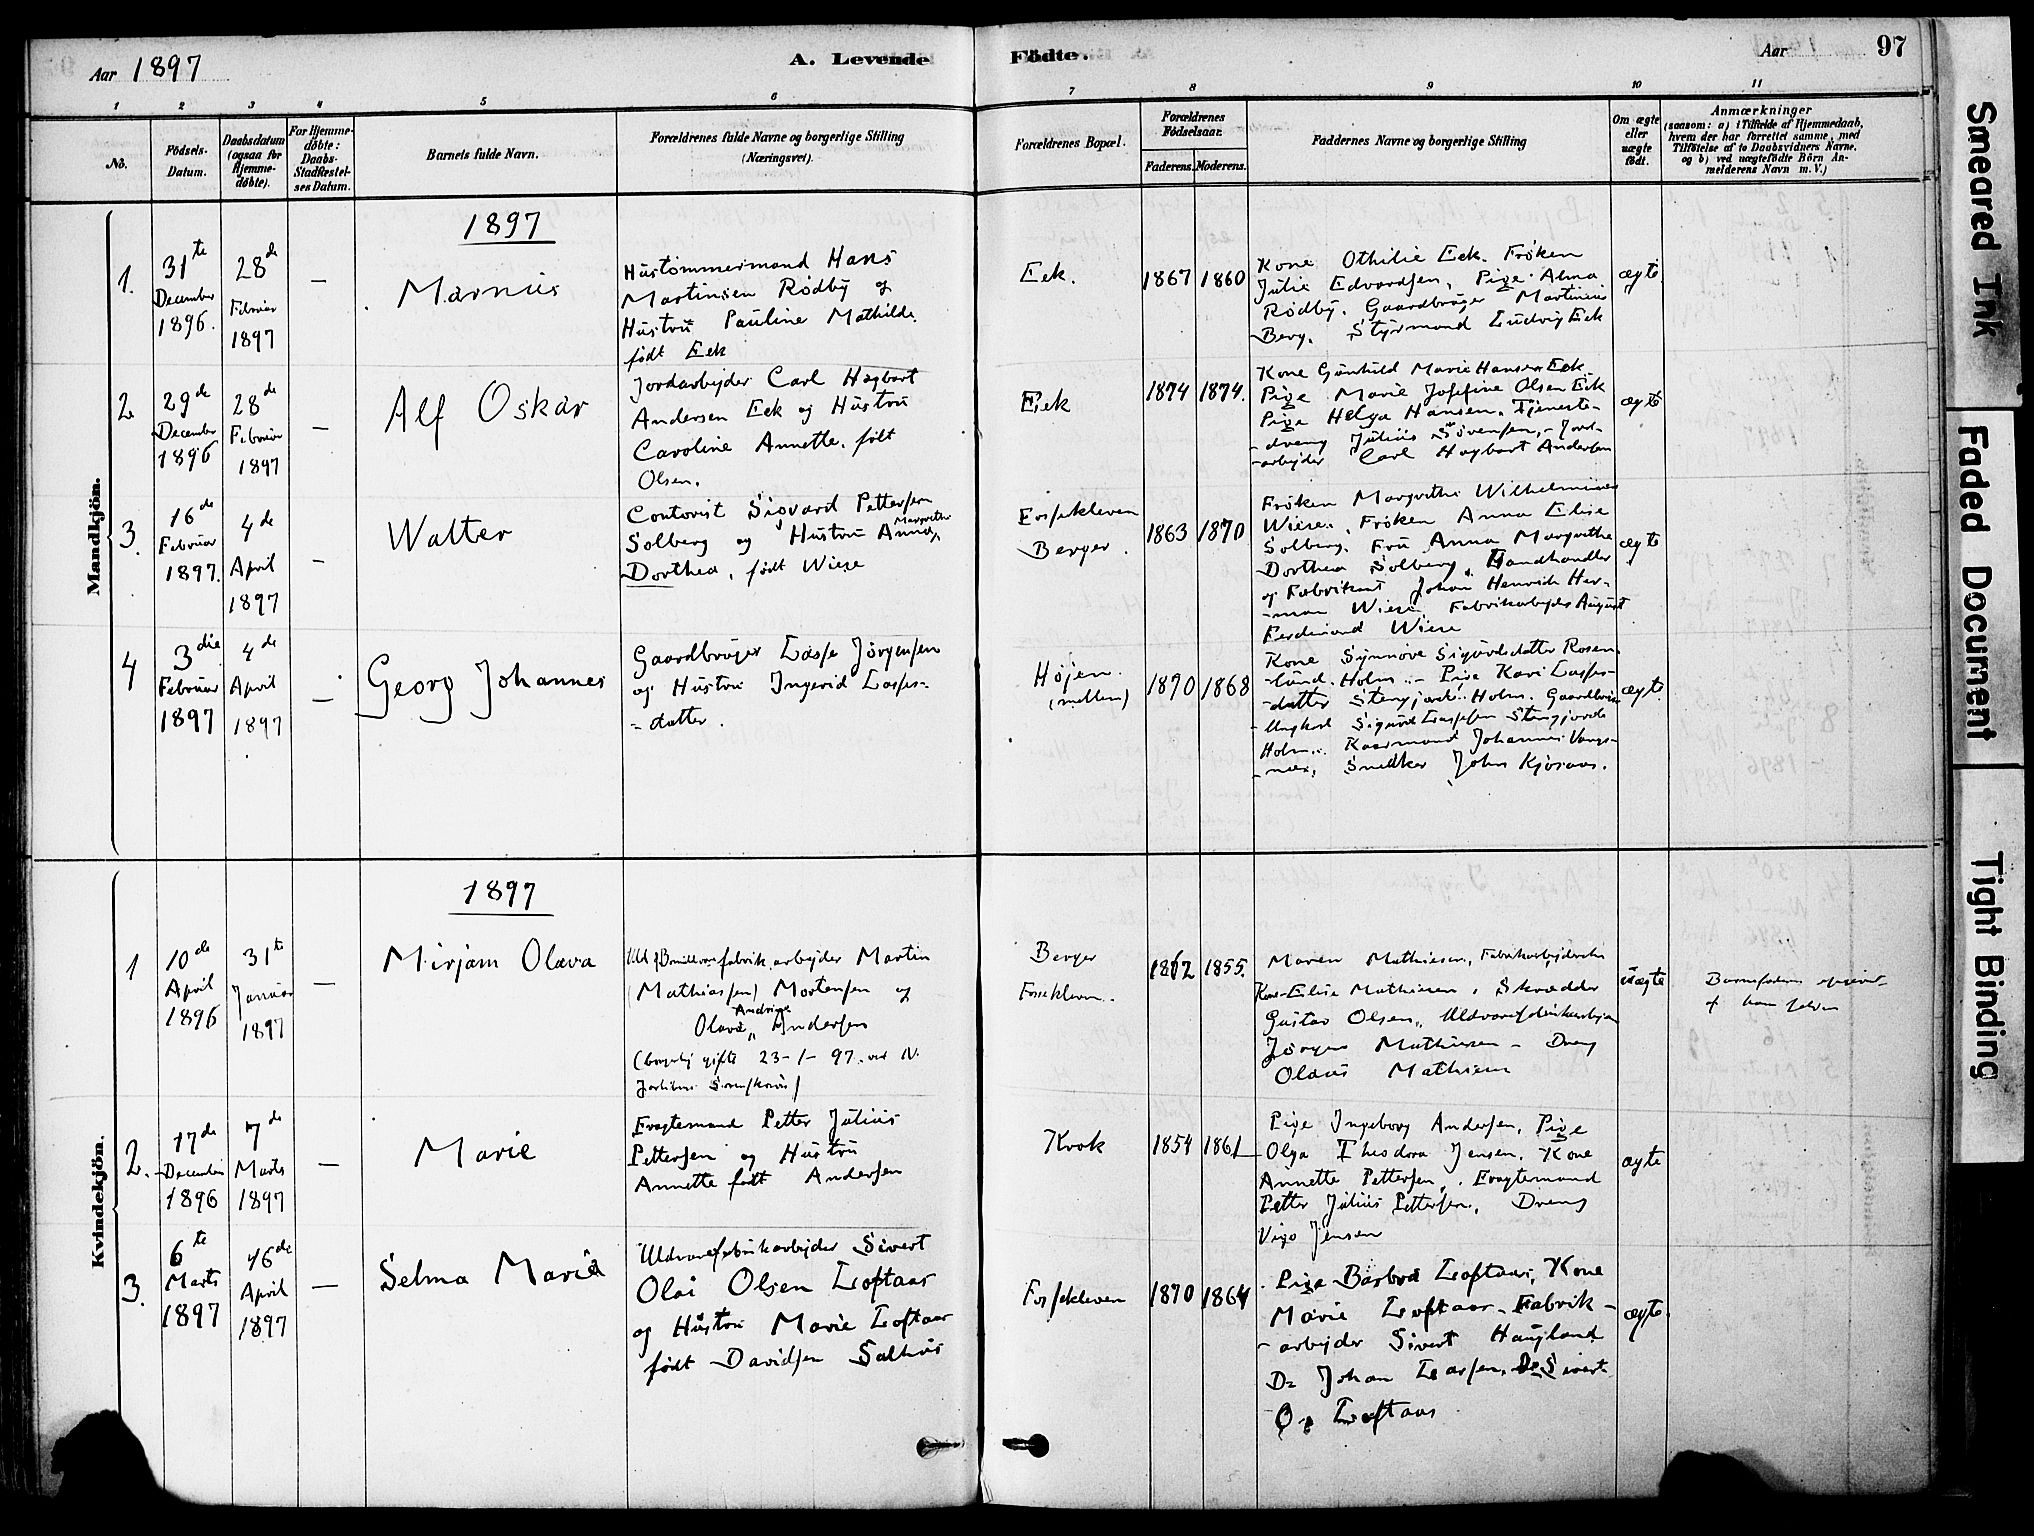 Aar 1897
A. Levende Födte.
Aar
97
1 2 3 4 5 6 7 8 9 10 11
No.
Födsels-
Datum.
Daabsdatum
(ogsaa for
Hjemme-
døbte).
For Hjemme-
døbte:
Daabs-
Stadfæstel-
ses Datum.
Barnets fulde Navn.
Forældrenes fulde Navne og borgerlige Stilling
(Næringsvei).
Forældrenes Bopæl.
Forældrenes
Fødselsaar.
Faderens. Moderens.
Faddernes Navne og borgerlige Stilling
Om ægte
eller
uægte
født.
Anmærkninger
(saasom: a) i Tilfælde af Hjemmedaab,
hvem der har forrettet samme, med
Tilføielse af to Daabsvidners Navne,
og b) ved uægtefødte Børn An-
melderens Navn m. V.)
Mandkjön.
1897
1.
31te
December
1896.
28de
Februar
1897
—
Marnius
Hustømmermand Hans
Martinsen Rødby og
Hustru Pauline Mathilde
født Eek
Eek.
1867 1860
Kone Othilie Eek. Frøken
Julie Edvardsen, Pige Alma
Rødby. Gaardbruger Martinius
Berg. Styrmand Ludvig Eek
ægte
2
29de
December
1896
28de
Februar
1897
—
Alf Oskar
Jordarbejder Carl Hagbart
Andersen Eek og Hustru
Caroline Annette, født
Olsen.
Eek
1874 1874.
Kone Gunhild Marie Hansen Eek
Pige Marie Josefine Olsen Eek
Pige Helga Hansen. Tjeneste-
-dreng Julius Sørensen, - Jord-
-arbejder Carl Hagbart Andersen
ægte
3.
16de
Februar
1897.
4de
April
1897
—
Walter
Contorist Sigvard Pettersen
Solberg og Hustru Anna Margrethe
Dorthea, født Wiese
Fossekleven
Berger.
1863 1870
Frøken Margrethe Wilhelmine
Wiese., Frøken Anna Elise
Solberg. Fru Anna Margrethe
Dorthea Solberg, Handhandler
og Fabrikant Johan Henrich Her-
-man Wiese, Fabrikarbejder August
Ferdinand Wiese
ægte
4
3die
Februar
1897
4de
April
1897
—
Georg Johannes
Gaardbruger Lasse Jørgensen
og Hustru Ingerid Lasses-
-datter.
Højen.
(mellem)
1870 1868
Kone Synnøve Sigurdsdatter Rosen-
-lund. Holm. - Pige Kari Lasses-
-datter Stengjorde. Holm. Gaardbru-
Ungkarl Sigurd Lassesen Stengjorde
Holm. Kaarmand Johannes Vangs-
-nes, Snedker John Kjøsaas.
ægte
Kvindekjön.
1897
1
10de
April
1896
31te
Januar
1897
—
Mirjam Olava
fabrik arbejder Martin
(Mathiassen) Mortensen og
Olava Andrine Andersen
(borgerlig gifte 23-1-97. ved N.
Berger
Fossekleven.
1862 1855.
Maren Mathiesen, Fabrikarbejderske
Kone Elise Mathiesen, Skrædder
Gustav Olsen, Uldvarefabrikarbejder
Jørgen Mathiesen - Dreng
Olaus Mathiesen
uægte
Barnefaderen opgivet
af ham selv
2.
17de
December
1896
7de
Marts
1897
—
Marie
Fragtemand Petter Julius
Pettersen og Hustru
Annette født Andersen
Krok
1854 1861
Pige Ingeborg Andersen, Pige
Olga Theodora Jensen, Kone
Annette Pettersen, Fragtemand
Petter Julius Pettersen, Dreng
Vigo Jensen
ægte
3.
6te
Marts
1897
16de
April
1897
—
Selma Marie
Uldvarefabrikarbejder Sivert
Olai Olsen Loftaas
og Hustru Marie Loftaas
født Davidsen Salhus
Fossekleven
1870 1864
Pige Barbra Loftaas, Kone
Marie Loftaas - Fabrik-
-arbejder Sivert Haugland
Do Johan Larsen. Do Sivert
O. Loftaas
ægte.
Smeared Ink
Faded Document
Tight Binding